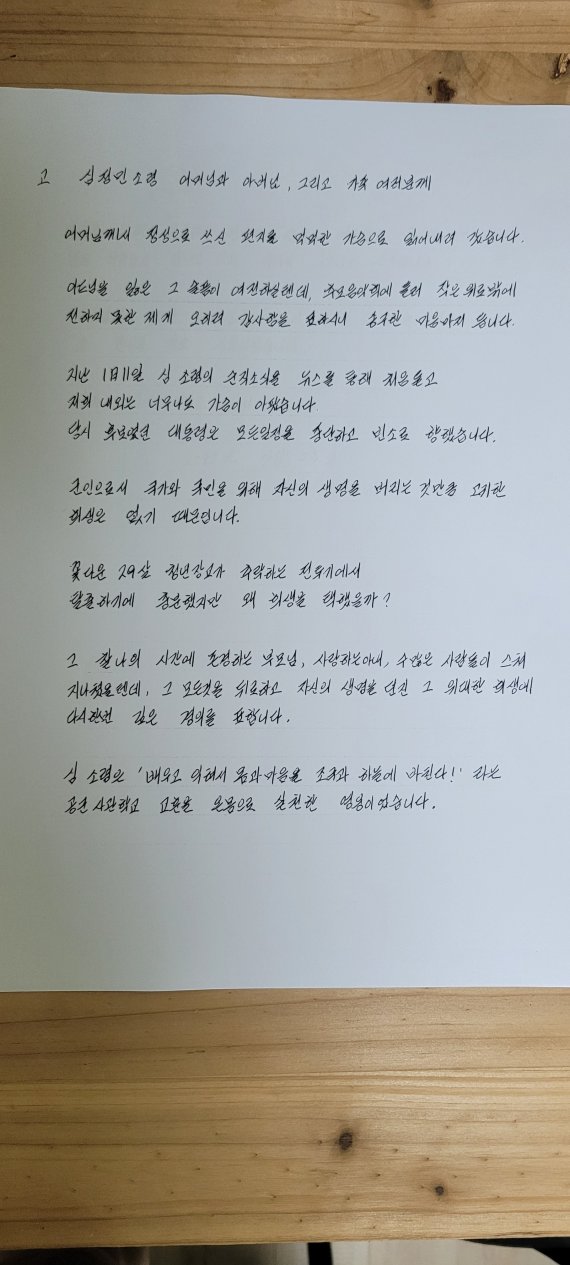 고 심정민 소령 어머님과 아버님, 그리고 가족 여러분께
어머님께서 정성으로 쓰신 편지를 먹먹한 가슴으로 읽어내려 갔습니다.
아드님을 잃은 그 슬픔이 여전하실텐데, 추모음악회에 들러 작은 위로밖에
전하지 못한 제게 오히려 감사함을 표하시니 송구한 마음마저 듭니다.
지난 1月11일 심 소령의 순직소식을 뉴스를 통해 처음 듣고
저희 내외는 너무나도 가슴이 아팠습니다.
당시 후보였던 대통령은 모든일정을 중단하고 빈소로 향했습니다.
군인으로서 국가와 국민을 위해 자신의 생명을 버리는 것만큼 고귀한
희생은 없기 때문입니다.
꽃다운 29살 청년장교가 추락하는 전투기에서
탈출하기에 충분했지만 왜 희생을 택했을까?
그 찰나의 시간에 존경하는 부모님, 사랑하는아내, 수많은 사람들이 스쳐
지나쳤을텐데, 그 모든것을 뒤로하고 자신의 생명을 던진 그 위대한 희생에
다시한번 깊은 경의를 표합니다.
심 소령은 '배우고 익혀서 몸과마음을 조국과 하늘에 바친다!' 라는
공군사관학교 교훈을 온몸으로 실천한 영웅이었습니다.